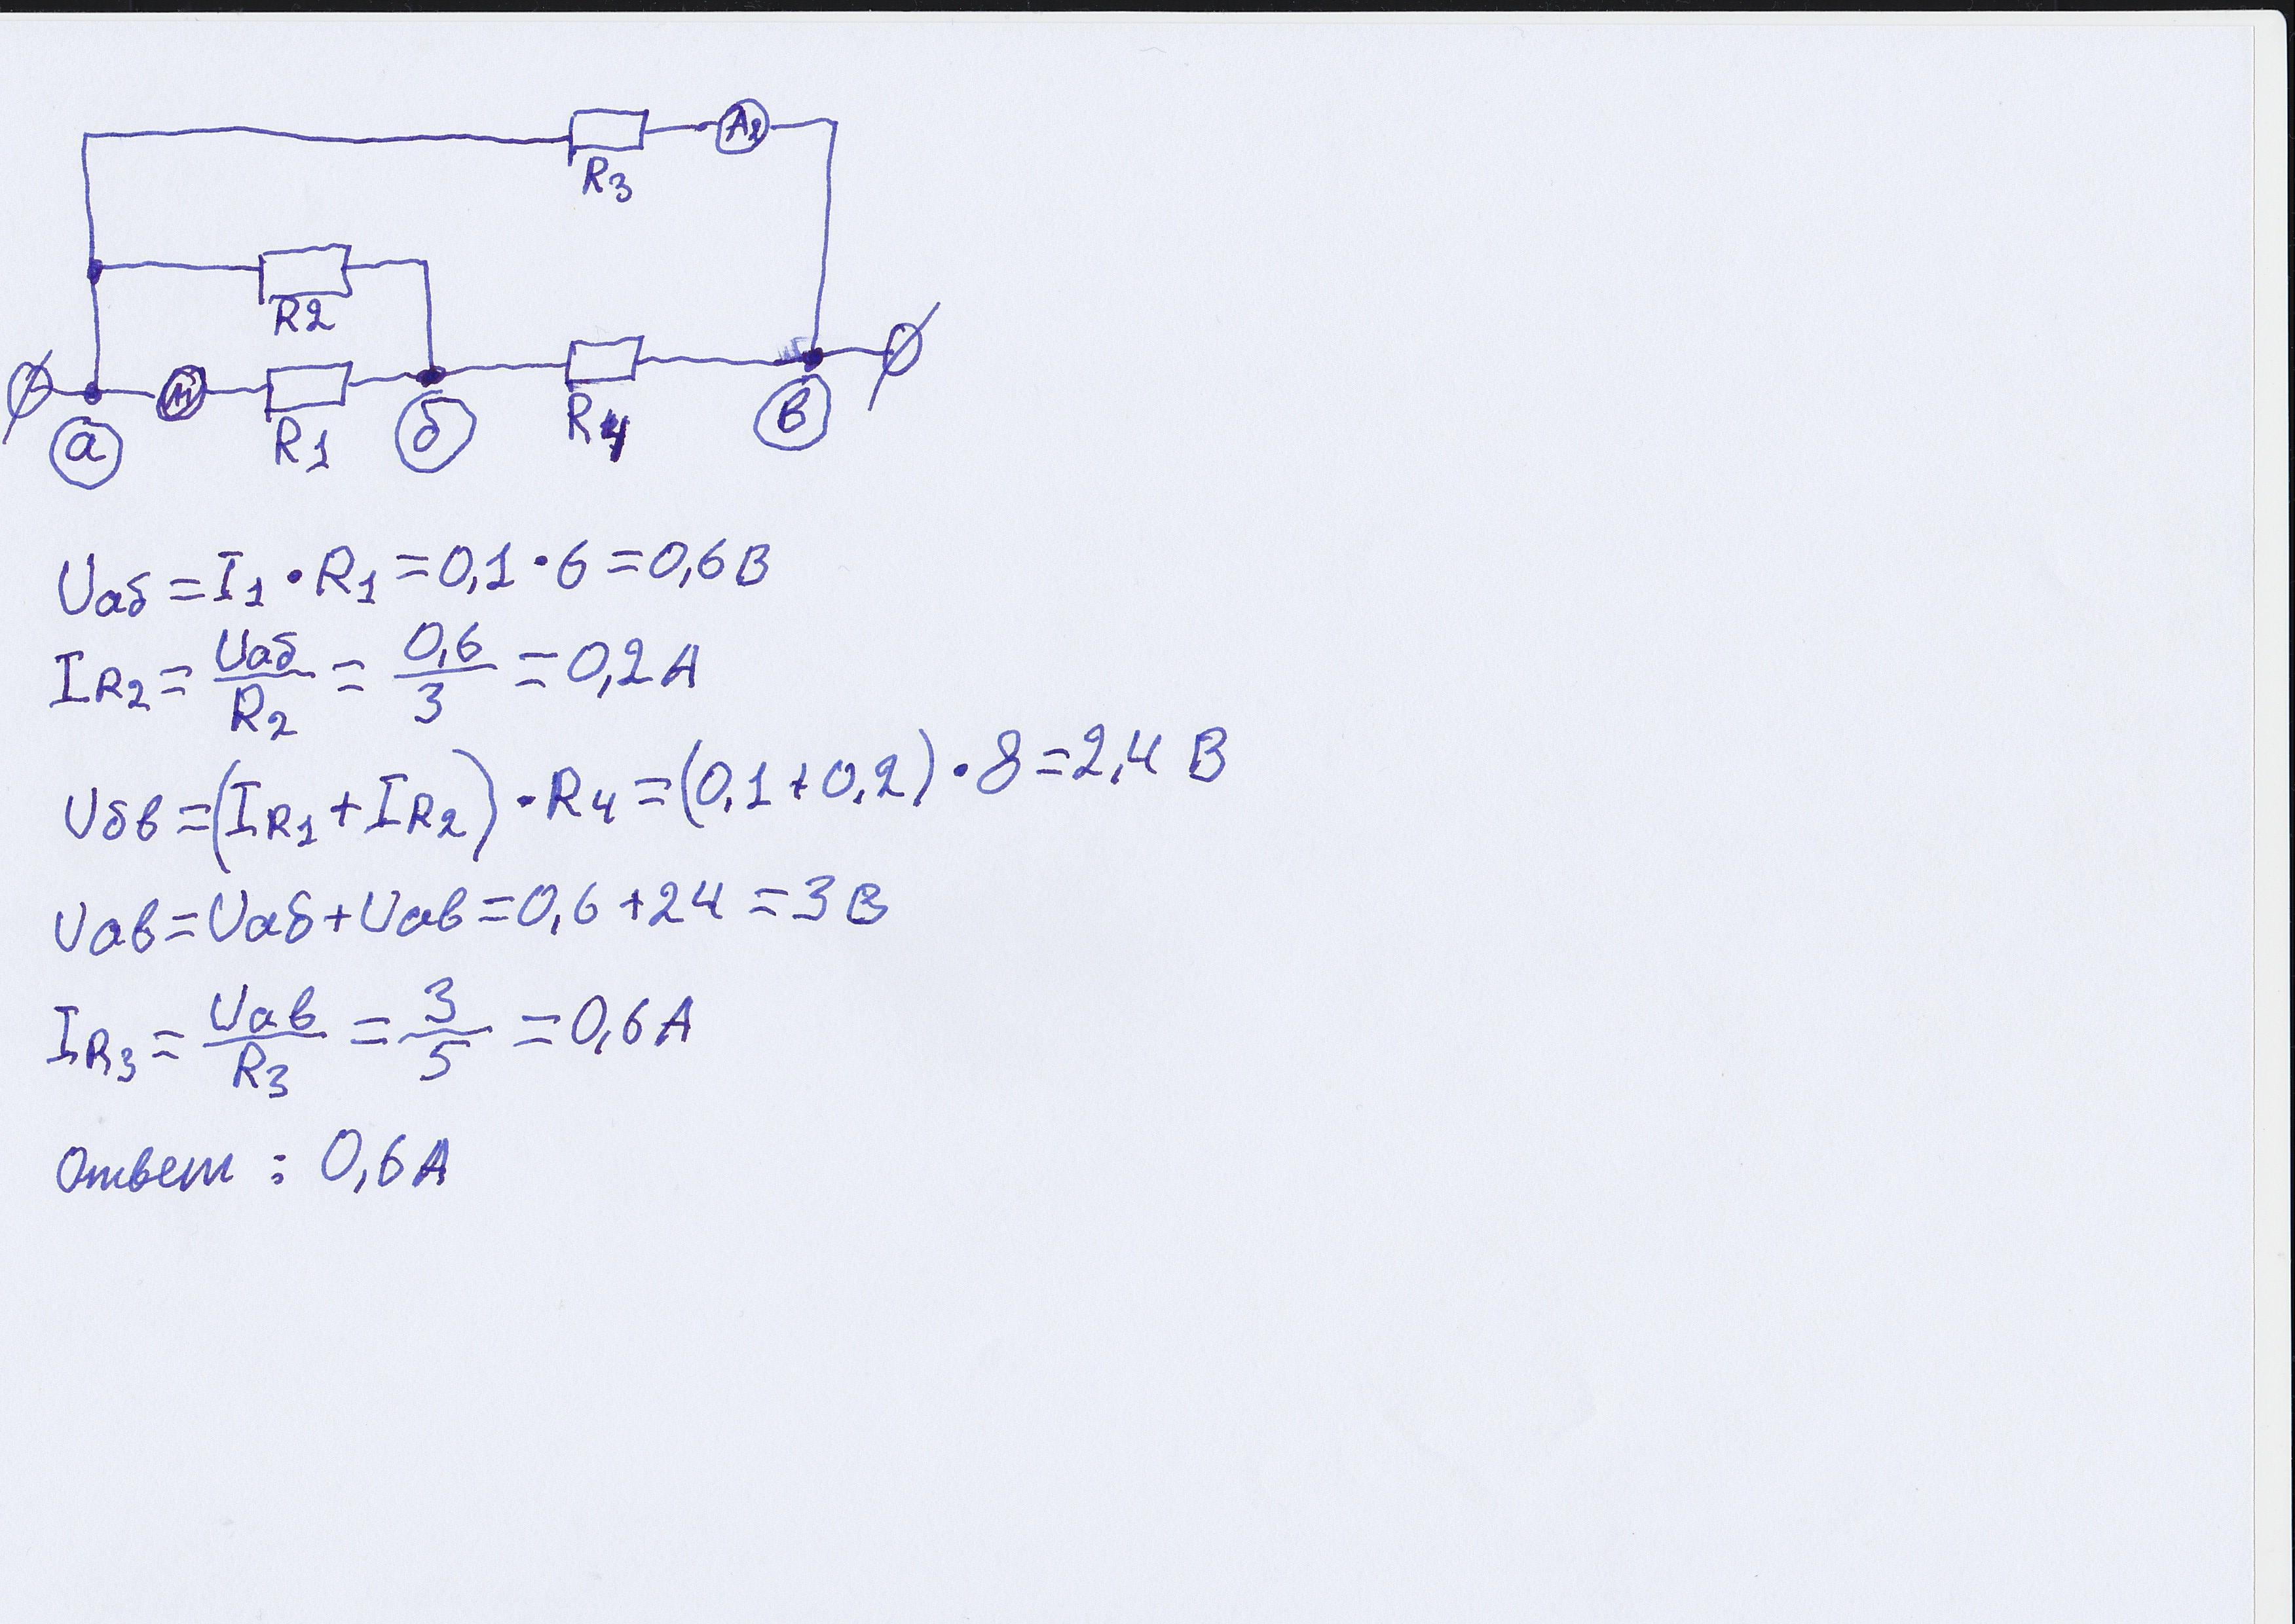 A2
R3
R2
A1
R1
R4
а
б
в
Uаб = I1 · R1 = 0,1 · 6 = 0,6 В
IR2 = Uаб / R2 = 0,6 / 3 = 0,2 А
Uбв = (IR1 + IR2) · R4 = (0,1 + 0,2) · 8 = 2,4 В
Uав = Uаб + Uав = 0,6 + 24 = 3 В
IR3 = Uав / R3 = 3 / 5 = 0,6 А
Ответ : 0,6 А